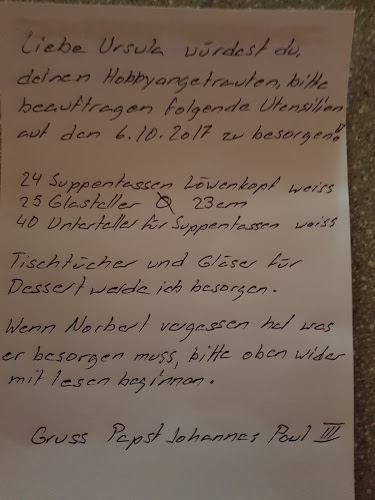 Liebe Ursula würdest du,
deinen Hobbyangetrauten, bitte
beauftragen folgende Utensilien
auf den 6.10.2017 zu besorgen!!
24 Suppentassen Löwenkopf weiss
25 Glasteller Ø 23cm
40 Unterteller für Suppentassen weiss
Tischtücher und Gläser für
Dessert werde ich besorgen.
Wenn Norbert vergessen hat was
er besorgen muss, bitte oben wider
mit lesen beginnen.
Gruss Papst Johannes Poul III